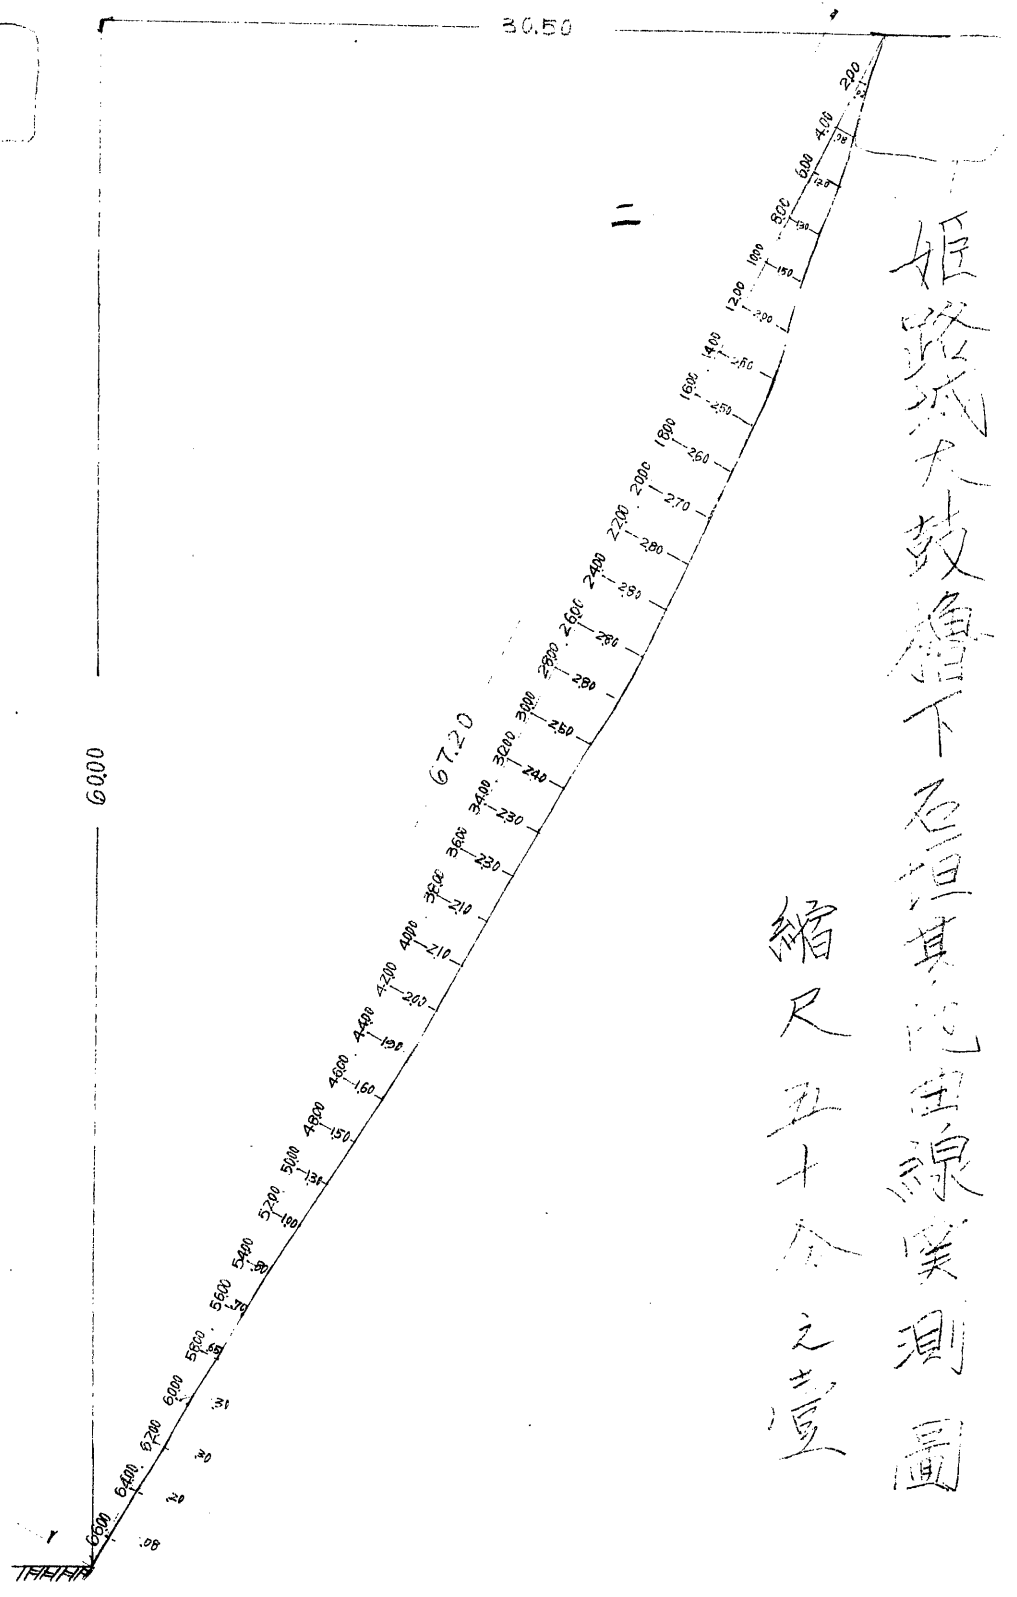 姫路城太鼓櫓下石垣其他曲線実測圖
縮尺五十分之壹
二
30.50
60.00
67.20
2.00
4.00 .80
6.00 1.20
8.00 1.30
10.00 1.50
12.00 2.00
14.00 2.50
16.00 2.50
18.00 2.60
20.00 2.70
22.00 2.80
24.00 2.80
26.00 2.80
28.00 2.80
30.00 2.50
32.00 2.40
34.00 2.30
36.00 2.30
38.00 2.10
40.00 2.10
42.00 2.00
44.00 1.90
46.00 1.60
48.00 1.50
50.00 1.30
52.00 1.00
54.00 .80
56.00 .70
58.00
60.00
62.00
64.00
66.00 .80